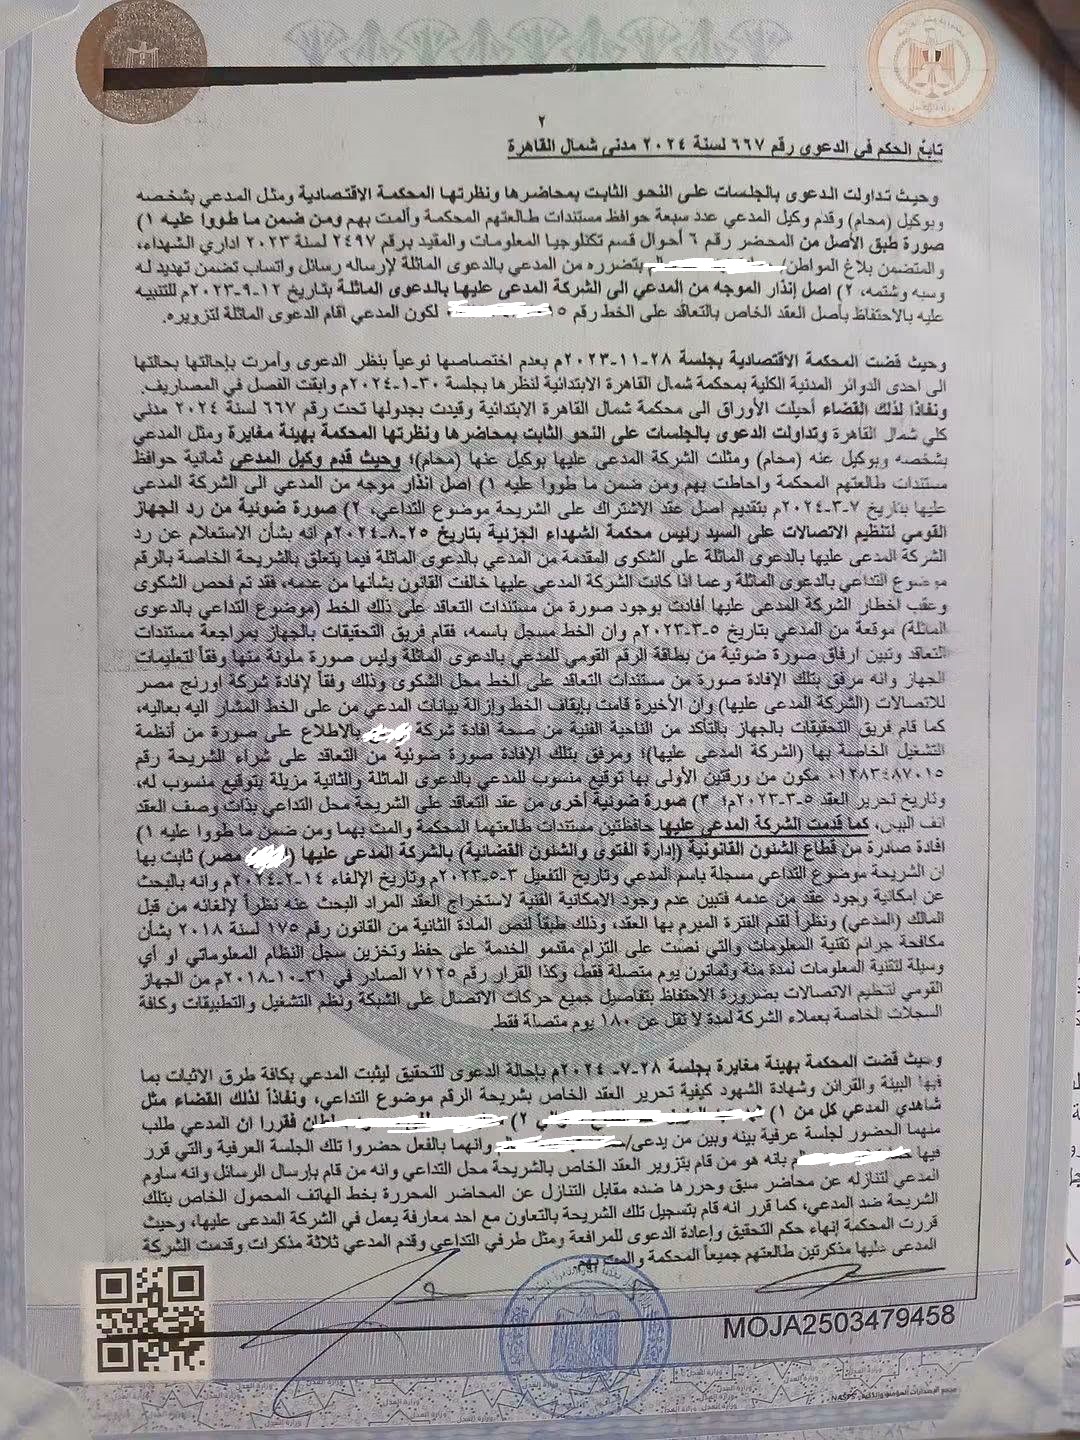 ٢
تابع الحكم في الدعوى رقم ٦٦٧ لسنة ٢٠٢٤ مدني شمال القاهرة
وحيث تداولت الدعوى بالجلسات على النحو الثابت بمحاضرها ونظرتها المحكمة الاقتصادية ومثل المدعي بشخصه
وبوكيل (محام) وقدم وكيل المدعي عدد سبعة حوافظ مستندات طالعتهم المحكمة وألمت بهم ومن ضمن ما طووا عليه ١)
صورة طبق الأصل من المحضر رقم ٦ أحوال قسم تكنلوجيا المعلومات والمقيد برقم ٢٤٩٧ لسنة ٢٠٢٣ اداري الشهداء،
والمتضمن بلاغ المواطن/ بتضرره من المدعي بالدعوى الماثلة لإرساله رسائل واتساب تضمن تهديد له
وسبه وشتمه، ٢) اصل إنذار الموجه من المدعي الى الشركة المدعى عليها بالدعوى الماثلة بتاريخ ١٢-٩-٢٠٢٣م للتنبيه
عليه بالاحتفاظ بأصل العقد الخاص بالتعاقد على الخط رقم ٥ لكون المدعي اقام الدعوى الماثلة لتزويره.
وحيث قضت المحكمة الاقتصادية بجلسة ٢٨-١١-٢٠٢٣م بعدم اختصاصها نوعياً بنظر الدعوى وأمرت بإحالتها بحالتها
الى احدى الدوائر المدنية الكلية بمحكمة شمال القاهرة الابتدائية لنظرها بجلسة ٣٠-١-٢٠٢٤م وابقت الفصل في المصاريف.
ونفاذا لذلك القضاء أحيلت الأوراق الى محكمة شمال القاهرة الابتدائية وقيدت بجدولها تحت رقم ٦٦٧ لسنة ٢٠٢٤ مدني
كلي شمال القاهرة وتداولت الدعوى بالجلسات على النحو الثابت بمحاضرها ونظرتها المحكمة بهيئة مغايرة ومثل المدعي
بشخصه وبوكيل عنه (محام) ومثلت الشركة المدعى عليها بوكيل عنها (محام)؛ وحيث قدم وكيل المدعي ثمانية حوافظ
مستندات طالعتهم المحكمة واحاطت بهم ومن ضمن ما طووا عليه ١) اصل انذار موجه من المدعي الى الشركة المدعى
عليها بتاريخ ٧-٣-٢٠٢٤م بتقديم اصل عقد الاشتراك على الشريحة موضوع التداعي، ٢) صورة ضوئية من رد الجهاز
القومي لتنظيم الاتصالات على السيد رئيس محكمة الشهداء الجزئية بتاريخ ٢٥-٨-٢٠٢٤م انه بشأن الاستعلام عن رد
الشركة المدعى عليها بالدعوى الماثلة على الشكوى المقدمة من المدعي بالدعوى الماثلة فيما يتعلق بالشريحة الخاصة بالرقم
موضوع التداعي بالدعوى الماثلة وعما اذا كانت الشركة المدعى عليها خالفت القانون بشأنها من عدمه، فقد تم فحص الشكوى
وعقب اخطار الشركة المدعى عليها أفادت بوجود صورة من مستندات التعاقد على ذلك الخط (موضوع التداعي بالدعوى
الماثلة) موقعة من المدعي بتاريخ ٥-٣-٢٠٢٣م وان الخط مسجل باسمه، فقام فريق التحقيقات بالجهاز بمراجعة مستندات
التعاقد وتبين ارفاق صورة ضوئية من بطاقة الرقم القومي للمدعي بالدعوى الماثلة وليس صورة ملونة منها وفقاً لتعليمات
الجهاز وانه مرفق بتلك الإفادة صورة من مستندات التعاقد على الخط محل الشكوى وذلك وفقاً لإفادة شركة اورنج مصر
للاتصالات (الشركة المدعى عليها) وان الأخيرة قامت بإيقاف الخط وإزالة بيانات المدعي من على الخط المشار اليه بعاليه،
كما قام فريق التحقيقات بالجهاز بالتأكد من الناحية الفنية من صحة افادة شركة بالاطلاع على صورة من أنظمة
التشغيل الخاصة بها (الشركة المدعى عليها)؛ ومرفق بتلك الإفادة صورة ضوئية من التعاقد على شراء الشريحة رقم
٠١٢٨٣٤٨٧٠١٥ مكون من ورقتين الأولى بها توقيع منسوب للمدعي بالدعوى الماثلة والثانية مزيلة بتوقيع منسوب له،
وتاريخ تحرير العقد ٥-٣-٢٠٢٣م؛ ٣) صورة ضوئية أخرى من عقد التعاقد على الشريحة محل التداعي بذات وصف العقد
انف البيان، كما قدمت الشركة المدعى عليها حافظتين مستندات طالعتهما المحكمة والمت بهما ومن ضمن ما طووا عليه ١)
افادة صادرة من قطاع الشئون القانونية (إدارة الفتوى والشئون القضائية) بالشركة المدعى عليها ( مصر) ثابت بها
ان الشريحة موضوع التداعي مسجلة باسم المدعي وتاريخ التفعيل ٣-٥-٢٠٢٣م وتاريخ الإلغاء ١٤-٢-٢٠٢٤م وانه بالبحث
عن إمكانية وجود عقد من عدمه فتبين عدم وجود الإمكانية الفنية لاستخراج العقد المراد البحث عنه نظراً لإلغائه من قبل
المالك (المدعي) ونظراً لقدم الفترة المبرم بها العقد، وذلك طبقاً لنص المادة الثانية من القانون رقم ١٧٥ لسنة ٢٠١٨ بشأن
مكافحة جرائم تقنية المعلومات والتي نصت على التزام مقدمو الخدمة على حفظ وتخزين سجل النظام المعلوماتي او أي
وسيلة لتقنية المعلومات لمدة مئة وثمانون يوم متصلة فقط، وكذا القرار رقم ٧١٢٥ الصادر في ٣١-١٠-٢٠١٨م من الجهاز
القومي لتنظيم الاتصالات بضرورة الاحتفاظ بتفاصيل جميع حركات الاتصال على الشبكة ونظم التشغيل والتطبيقات وكافة
السجلات الخاصة بعملاء الشركة لمدة لا تقل عن ١٨٠ يوم متصلة فقط.
وحيث قضت المحكمة بهيئة مغايرة بجلسة ٢٨-٧-٢٠٢٤م بإحالة الدعوى للتحقيق ليثبت المدعي بكافة طرق الاثبات بما
فيها البينة والقرائن وشهادة الشهود كيفية تحرير العقد الخاص بشريحة الرقم موضوع التداعي، ونفاذاً لذلك القضاء مثل
شاهدي المدعي كل من ١) ٢) فقررا ان المدعي طلب
منهما الحضور لجلسة عرفية بينه وبين من يدعى/ وانهما بالفعل حضروا تلك الجلسة العرفية والتي قرر
فيها بانه هو من قام بتزوير العقد الخاص بالشريحة محل التداعي وانه من قام بإرسال الرسائل وانه ساوم
المدعي لتنازله عن محاضر سبق وحررها ضده مقابل التنازل عن المحاضر المحررة بخط الهاتف المحمول الخاص بتلك
الشريحة ضد المدعي، كما قرر انه قام بتسجيل تلك الشريحة بالتعاون مع احد معارفة يعمل في الشركة المدعى عليها، وحيث
قررت المحكمة إنهاء حكم التحقيق وإعادة الدعوى للمرافعة ومثل طرفي التداعي وقدم المدعي ثلاثة مذكرات وقدمت الشركة
المدعى عليها مذكرتين طالعتهم جميعاً المحكمة والمت بهم
MOJA2503479458